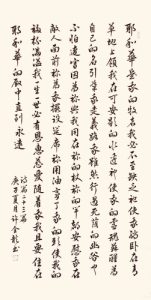 耶和華是我的牧者我必不至缺乏祂使我躺臥在青
草地上領我在可安歇的水邊祂使我的靈魂甦醒為
自己的名引導我走義路我雖然行過死蔭的幽谷也
不怕遭害因為祢與我同在祢的杖祢的竿都安慰我在
敵人面前祢為我擺設筵席祢用油膏了我的頭使我的
福杯滿溢我一生一世必有恩惠慈愛隨著我我且要住在
耶和華的殿中直到永遠
詩篇二十三篇
夏月許金書